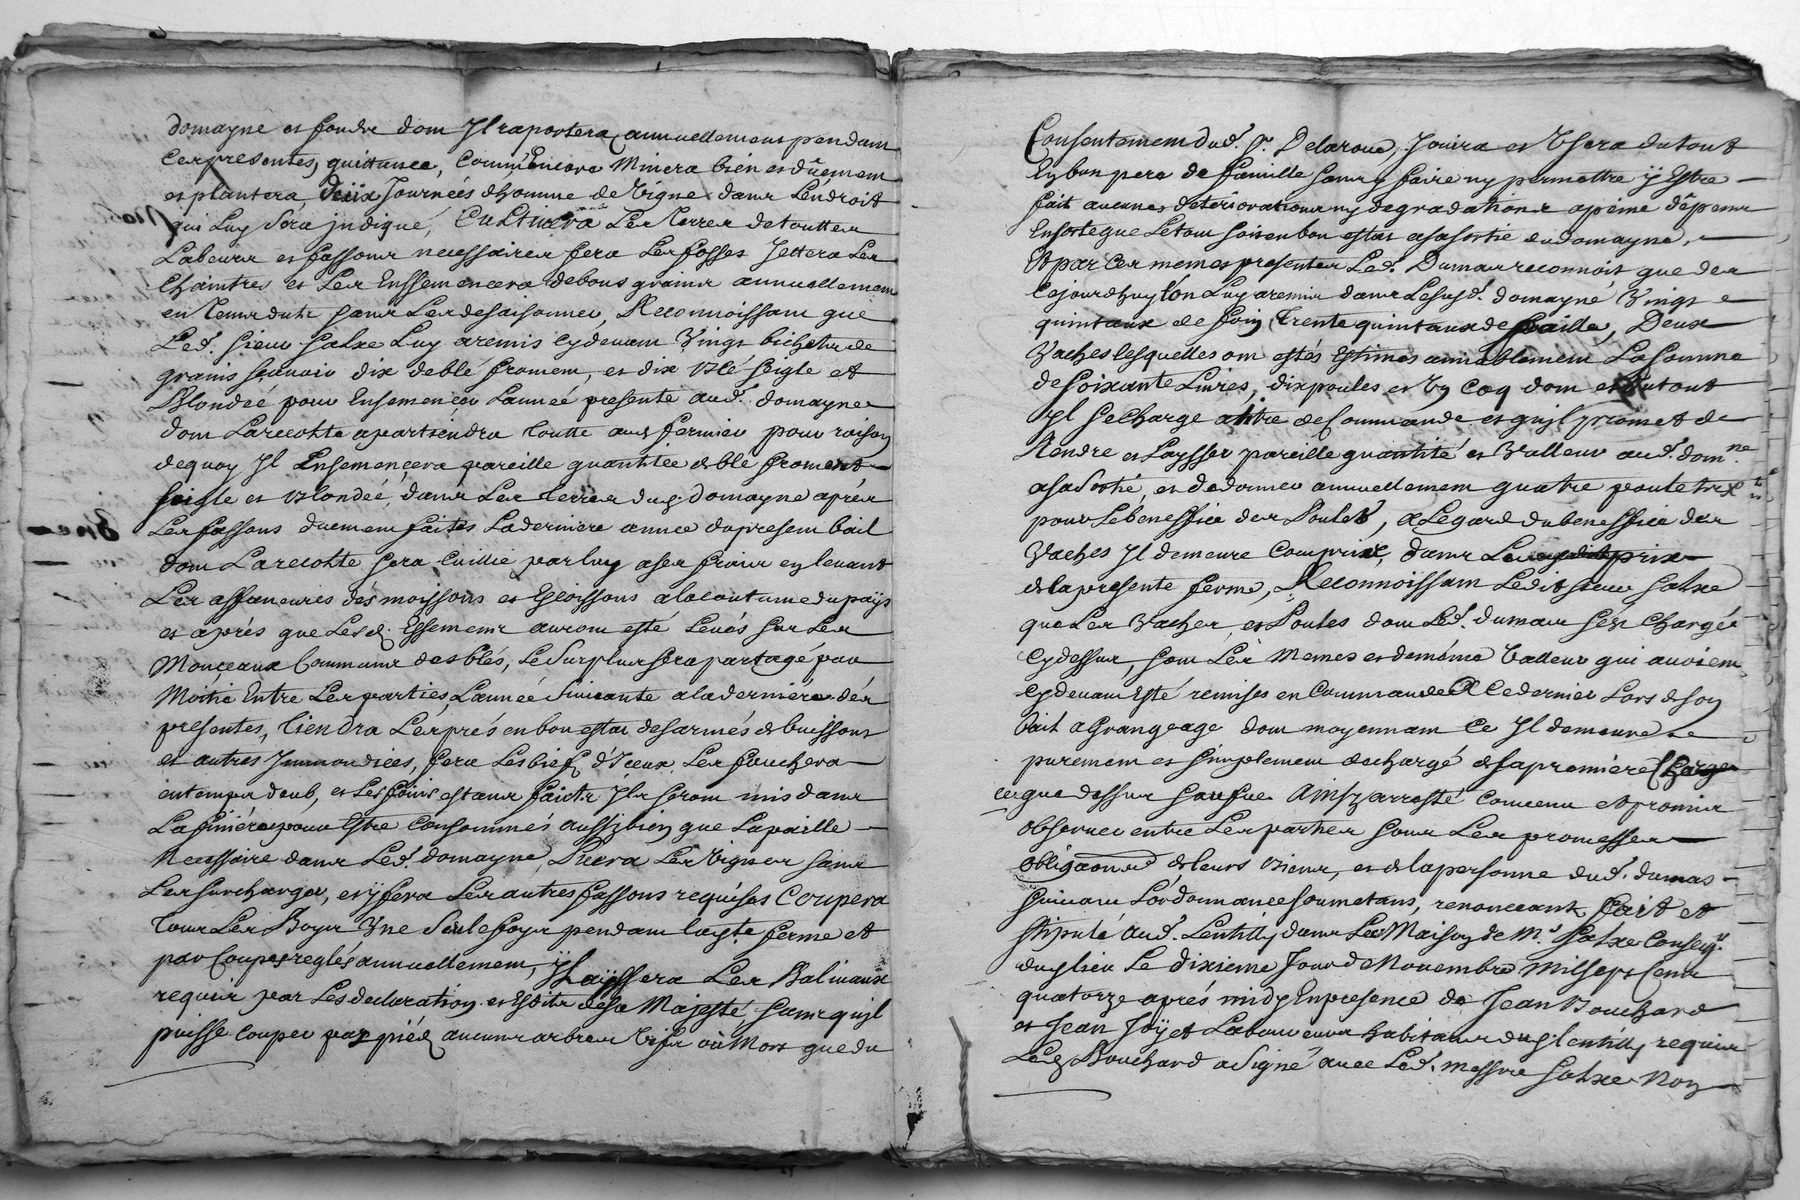 domayne et fondre dont Il raportera annuellement pendant
Ces presentes, quittance, Comm' Encore Minera bien et dûement
et plantera deux Journées dhomme de Vigne dans Lendroit
qui Luy Sera jndiqué, Cultivera Les Terres de touttes
Labeurs et fassons necessaires fera Les fosses Jettera Les
Chaintres et Les Enssemencera de bons grains annuellement
en Temps dutz sans Les desaisonner, Reconnoissant que
Led. Sieur Salxe Luy aremis Cydevant Vingt bichets de
grains sçavoir dix de blé froment, et dix blé seigle et
Blondéé pour Ensemencer Lannéé presente aud. domayne
dont Larecolte apartiendra toutte aud fermier pour raison
dequoy Il Ensemencera pareille quantitée de blé froment
seigle et blondéé, dans Les terres dud. domayne aprés
Les fassons duement faites La derniere annee du present bail
dont La recolte sera Cuillie par luy a ses frais en levant
Les affaneures dés moissons et Escoissons a la coutume du pays
et aprés que Lesd. Essements auront esté Levés sur Les
Monçeaux Communs des blés, Le Surplus sera partagé par
Moitié Entre Les parties Lannéé Suivante a la derniére dés
presentes, Tiendra Les prés en bon estat desarmés de buissons
et autres Immondices, fera Les bief d'Iceux Les fauchera
en temps deub, et Les foins estans faicts Ils seront mis dans
La feniére pour Estre Consommés aussy bien que La paille
Necessaire dans Led. domayne, Les Vignes sans
Les surcharger, et y fera Les autres fassons requises Coupera
Tous Les Boys Une Seule foys pendant lad.te ferme et
par Coupes reglés annuellement, y Layssera Les Balivaux
requis par Les declaration et Esdits de sa Majesté sans quil
puisse couper par pied aucuns arbres Vifs où Mort que du
Consentement dud. Sr. Delaroue, Jouira et Usera du tout
En bon pere de famille sans y faire ny permettre ÿ Estre
fait aucunes deteriorations ny degradations apeine dêpens
Ensorte que Le tout soit en bon estat a sa sortie dud domayne,
Et par Ces mémes presentes Led. Dumas reconnoit que des
Cejourdhuy lon Luy aremis dans Lesusd. domayné Vingt
quintaux de foin, Trente quintaux de paille, Deux
Vaches lesquelles ont estés Estimés amiablement La somme
de soixante Livres, dix poules et Un Coq dont et du tout
Il se Charge atitre de Commande et quil promet de
Rendre et Laysser pareille quantité et Valleur aud. domne.
a sa sortié, et de donner annuellement quatre pouletx
pour Le beneffice des Poules, a Legard du beneffice des
Vaches Il demeure Compris, dans Le prix
de la presente ferme, Reconnoissant Ledit sieur Salxe
que Les Vaches, et Poules dont Led. dumas sest Chargé
Cydessus, sont Les Mémes et de méme Valleur qui avoient
Cydevant Esté remises en Commande a Ce dernier Lors de son
bait a Grangeage dont moyennant Ce Il demeure
purement et simplement dechargé de sa premiere Charge
ce que dessus Ainsy arresté Convenu et promis
observer entre Les parties sous Les promesses
obligaons de leurs biens, et de la personne dud. dumas
suivant Lordonnance soumetans, renonceant Fait et
stipulé Aud. Lentilly dans La Maison de Mr Salxe Conseigr.
dud. lieu Le dixieme Jour de Novembre Mil sept Cent
quatorze aprés midy En presence de Jean Bouchard
et Jean Joÿet Laboureurs habitans dud. lentilly requis
Led Bouchard a Signé avec Led. messire Salxe Non